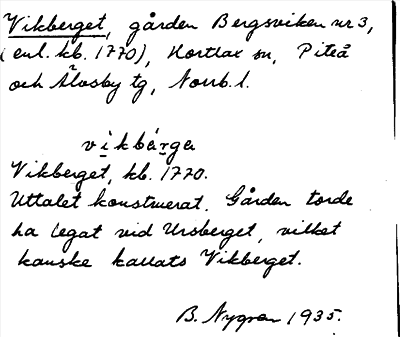 Vikberget, gården Bergsviken nr 3,
(enl. kb. 1770), Hortlax sn, Piteå
och Älvsby tg, Norrb. l.
vikbärga
Vikberget, kb. 1770.
Uttalet konstruerat. Gården torde
ha legat vid Ursberget, vilket
kanske kallats Vikberget.
B. Nygren 1935.